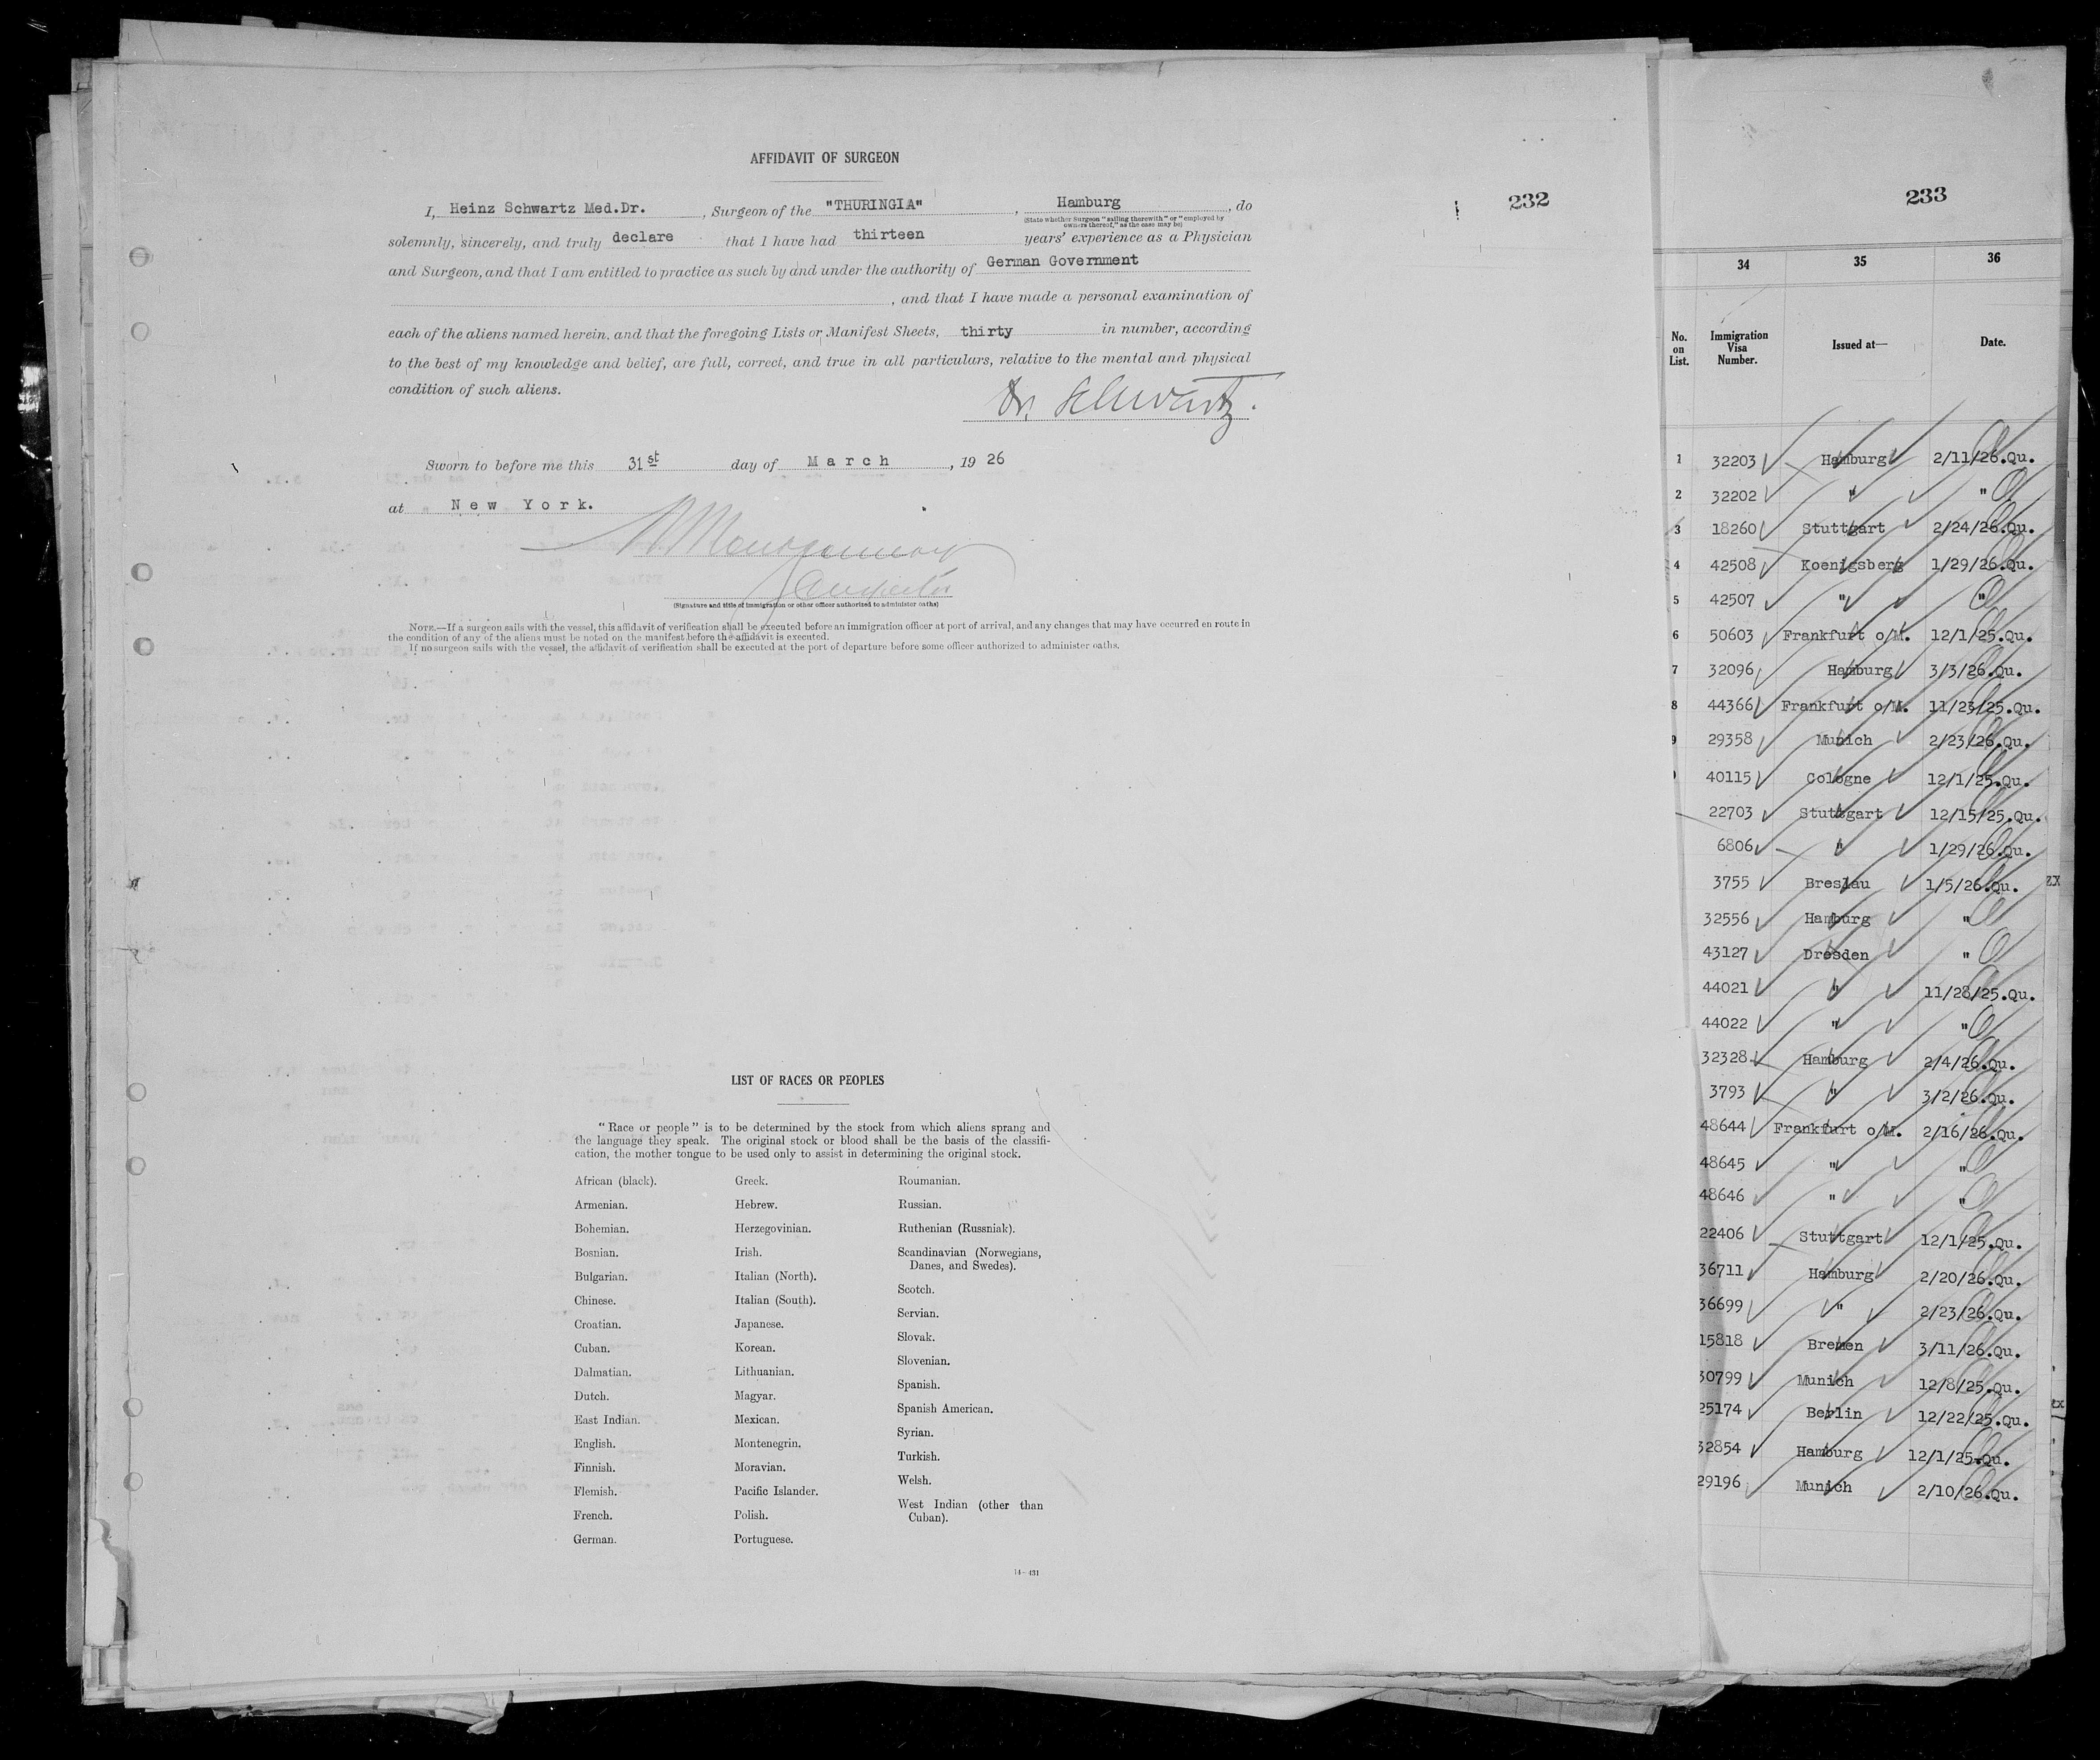 AFFIDAVIT OF SURGEON
I, Heinz Schwartz Med.Dr. , Surgeon of the "THURINGIA" , Hamburg , do
(State whether Surgeon "sailing therewith" or "employed by
owners thereof," as the case may be)
solemnly, sincerely, and truly declare that I have had thirteen years' experience as a Physician
and Surgeon, and that I am entitled to practice as such by and under the authority of German Government
, and that I have made a personal examination of
each of the aliens named herein, and that the foregoing Lists or Manifest Sheets, thirty in number, according
to the best of my knowledge and belief, are full, correct, and true in all particulars, relative to the mental and physical
condition of such aliens.
Dr. Schwartz.
Sworn to before me this 31st day of March , 19 26
at New York.
(Signature and title of immigration or other officer authorized to administer oaths)
NOTE.—If a surgeon sails with the vessel, this affidavit of verification shall be executed before an immigration officer at port of arrival, and any changes that may have occurred en route in
the condition of any of the aliens must be noted on the manifest before the affidavit is executed.
If no surgeon sails with the vessel, the affidavit of verification shall be executed at the port of departure before some officer authorized to administer oaths.
232
LIST OF RACES OR PEOPLES
"Race or people" is to be determined by the stock from which aliens sprang and
the language they speak. The original stock or blood shall be the basis of the classifi-
cation, the mother tongue to be used only to assist in determining the original stock.
African (black).
Armenian.
Bohemian.
Bosnian.
Bulgarian.
Chinese.
Croatian.
Cuban.
Dalmatian.
Dutch.
East Indian.
English.
Finnish.
Flemish.
French.
German.
Greek.
Hebrew.
Herzegovinian.
Irish.
Italian (North).
Italian (South).
Japanese.
Korean.
Lithuanian.
Magyar.
Mexican.
Montenegrin.
Moravian.
Pacific Islander.
Polish.
Portuguese.
Roumanian.
Russian.
Ruthenian (Russniak).
Scandinavian (Norwegians,
Danes, and Swedes).
Scotch.
Servian.
Slovak.
Slovenian.
Spanish.
Spanish American.
Syrian.
Turkish.
Welsh.
West Indian (other than
Cuban).
14-431
233
34 35 36
No. on List. Immigration Visa Number. Issued at— Date.
1 32203 Hamburg 2/11/26.Qu.
2 32202 " "
3 18260 Stuttgart 2/24/26.Qu.
4 42508 Koenigsberg 1/29/26.Qu.
5 42507 " "
6 50603 Frankfurt o/M. 12/1/25.Qu.
7 32096 Hamburg 3/3/26.Qu.
8 44366 Frankfurt o/M. 11/23/25.Qu.
9 29358 Munich 2/23/26.Qu.
40115 Cologne 12/1/25.Qu.
22703 Stuttgart 12/15/25.Qu.
6806 " 1/29/26.Qu.
3755 Breslau 1/5/26.Qu.
32556 Hamburg "
43127 Dresden "
44021 " 11/28/25.Qu.
44022 " "
32328 Hamburg 2/4/26.Qu.
3793 " 3/2/26.Qu.
48644 Frankfurt o/M. 2/16/26.Qu.
48645 " "
48646 " "
22406 Stuttgart 12/1/25.Qu.
36711 Hamburg 2/20/26.Qu.
36699 " 2/23/26.Qu.
15818 Bremen 3/11/26.Qu.
30799 Munich 12/8/25.Qu.
25174 Berlin 12/22/25.Qu.
32854 Hamburg 12/1/25.Qu.
29196 Munich 2/10/26.Qu.